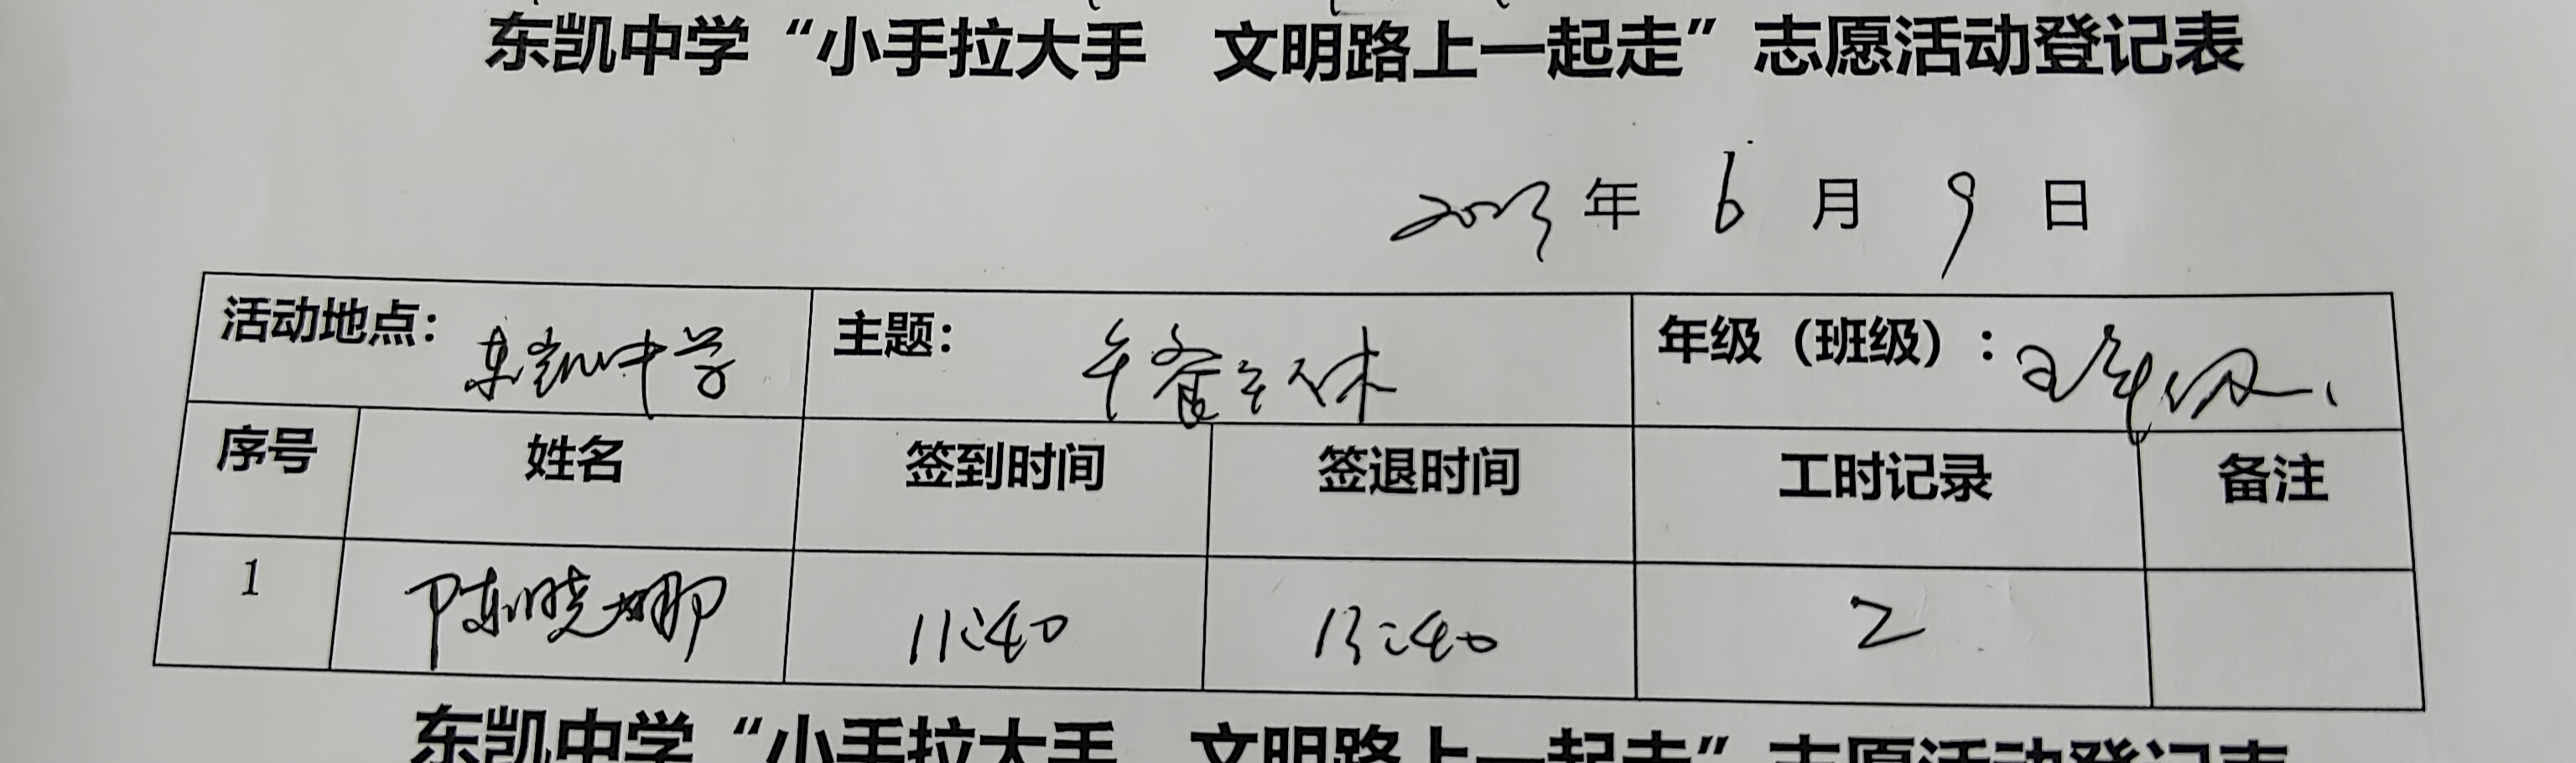 东凯中学“小手拉大手 文明路上一起走”志愿活动登记表
2023年 6月 9日
活动地点：东凯中学 主题：午餐午休 年级（班级）：年级
序号 姓名 签到时间 签退时间 工时记录 备注
1 陈晓娜 11:40 13:40 2
东凯中学“小手拉大手 文明路上一起走”志愿活动登记表